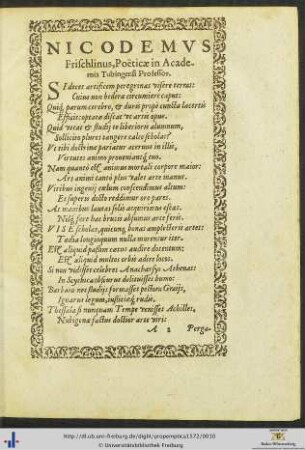 NICODEMVS
Frischlinus, Poëticæ in Acade-
mia Tubingensi Professor.
SI decet artificem peregrinas visere terras:
Cuius non hedera circumiere caput:
Quiq́, parum cerebro, & duris propè cuncta lacertis
Efficit: optatæ discat vt artis opus.
Quid vetat & studijs te liberioris alumnum,
Sollicito plures tangere calce scholas?
Vt tibi doctrina pariatur acervus in illis,
Virtutis animo proveniantq́ue.
Nam quantò est animus mortali corpore maior:
Ars animi tantò plus valet arte manus.
Viribus ingenij cœlum conscendimus altum:
Et superis docto reddimur ore pares.
At manibus lautas solùm acquirimus escas.
Nilq́, fore hac brutis absumus arte feris.
VISE scholas, quicunq, bonas amplecteris artes:
Tædia longinquum nulla morentur iter.
Est aliquid passim cætus audire docentum:
Est aliquid multos orbis adire locos.
Si non vidisset celebres Anacharsis Athenas:
In Scythica obscurus delituisset humo:
Barbara nec studijs formasset pectora Graijs,
Ignarus legum, iustitiæq́ rudis.
Thessala si nunquam Tempe venisset Achilles,
Nubigenæ factus doctior arte viri:
A 2
Perga-
http://dl.ub.uni-freiburg.de/diglit/propemptica1572/0010
© Universitätsbibliothek Freiburg
Baden-Württemberg